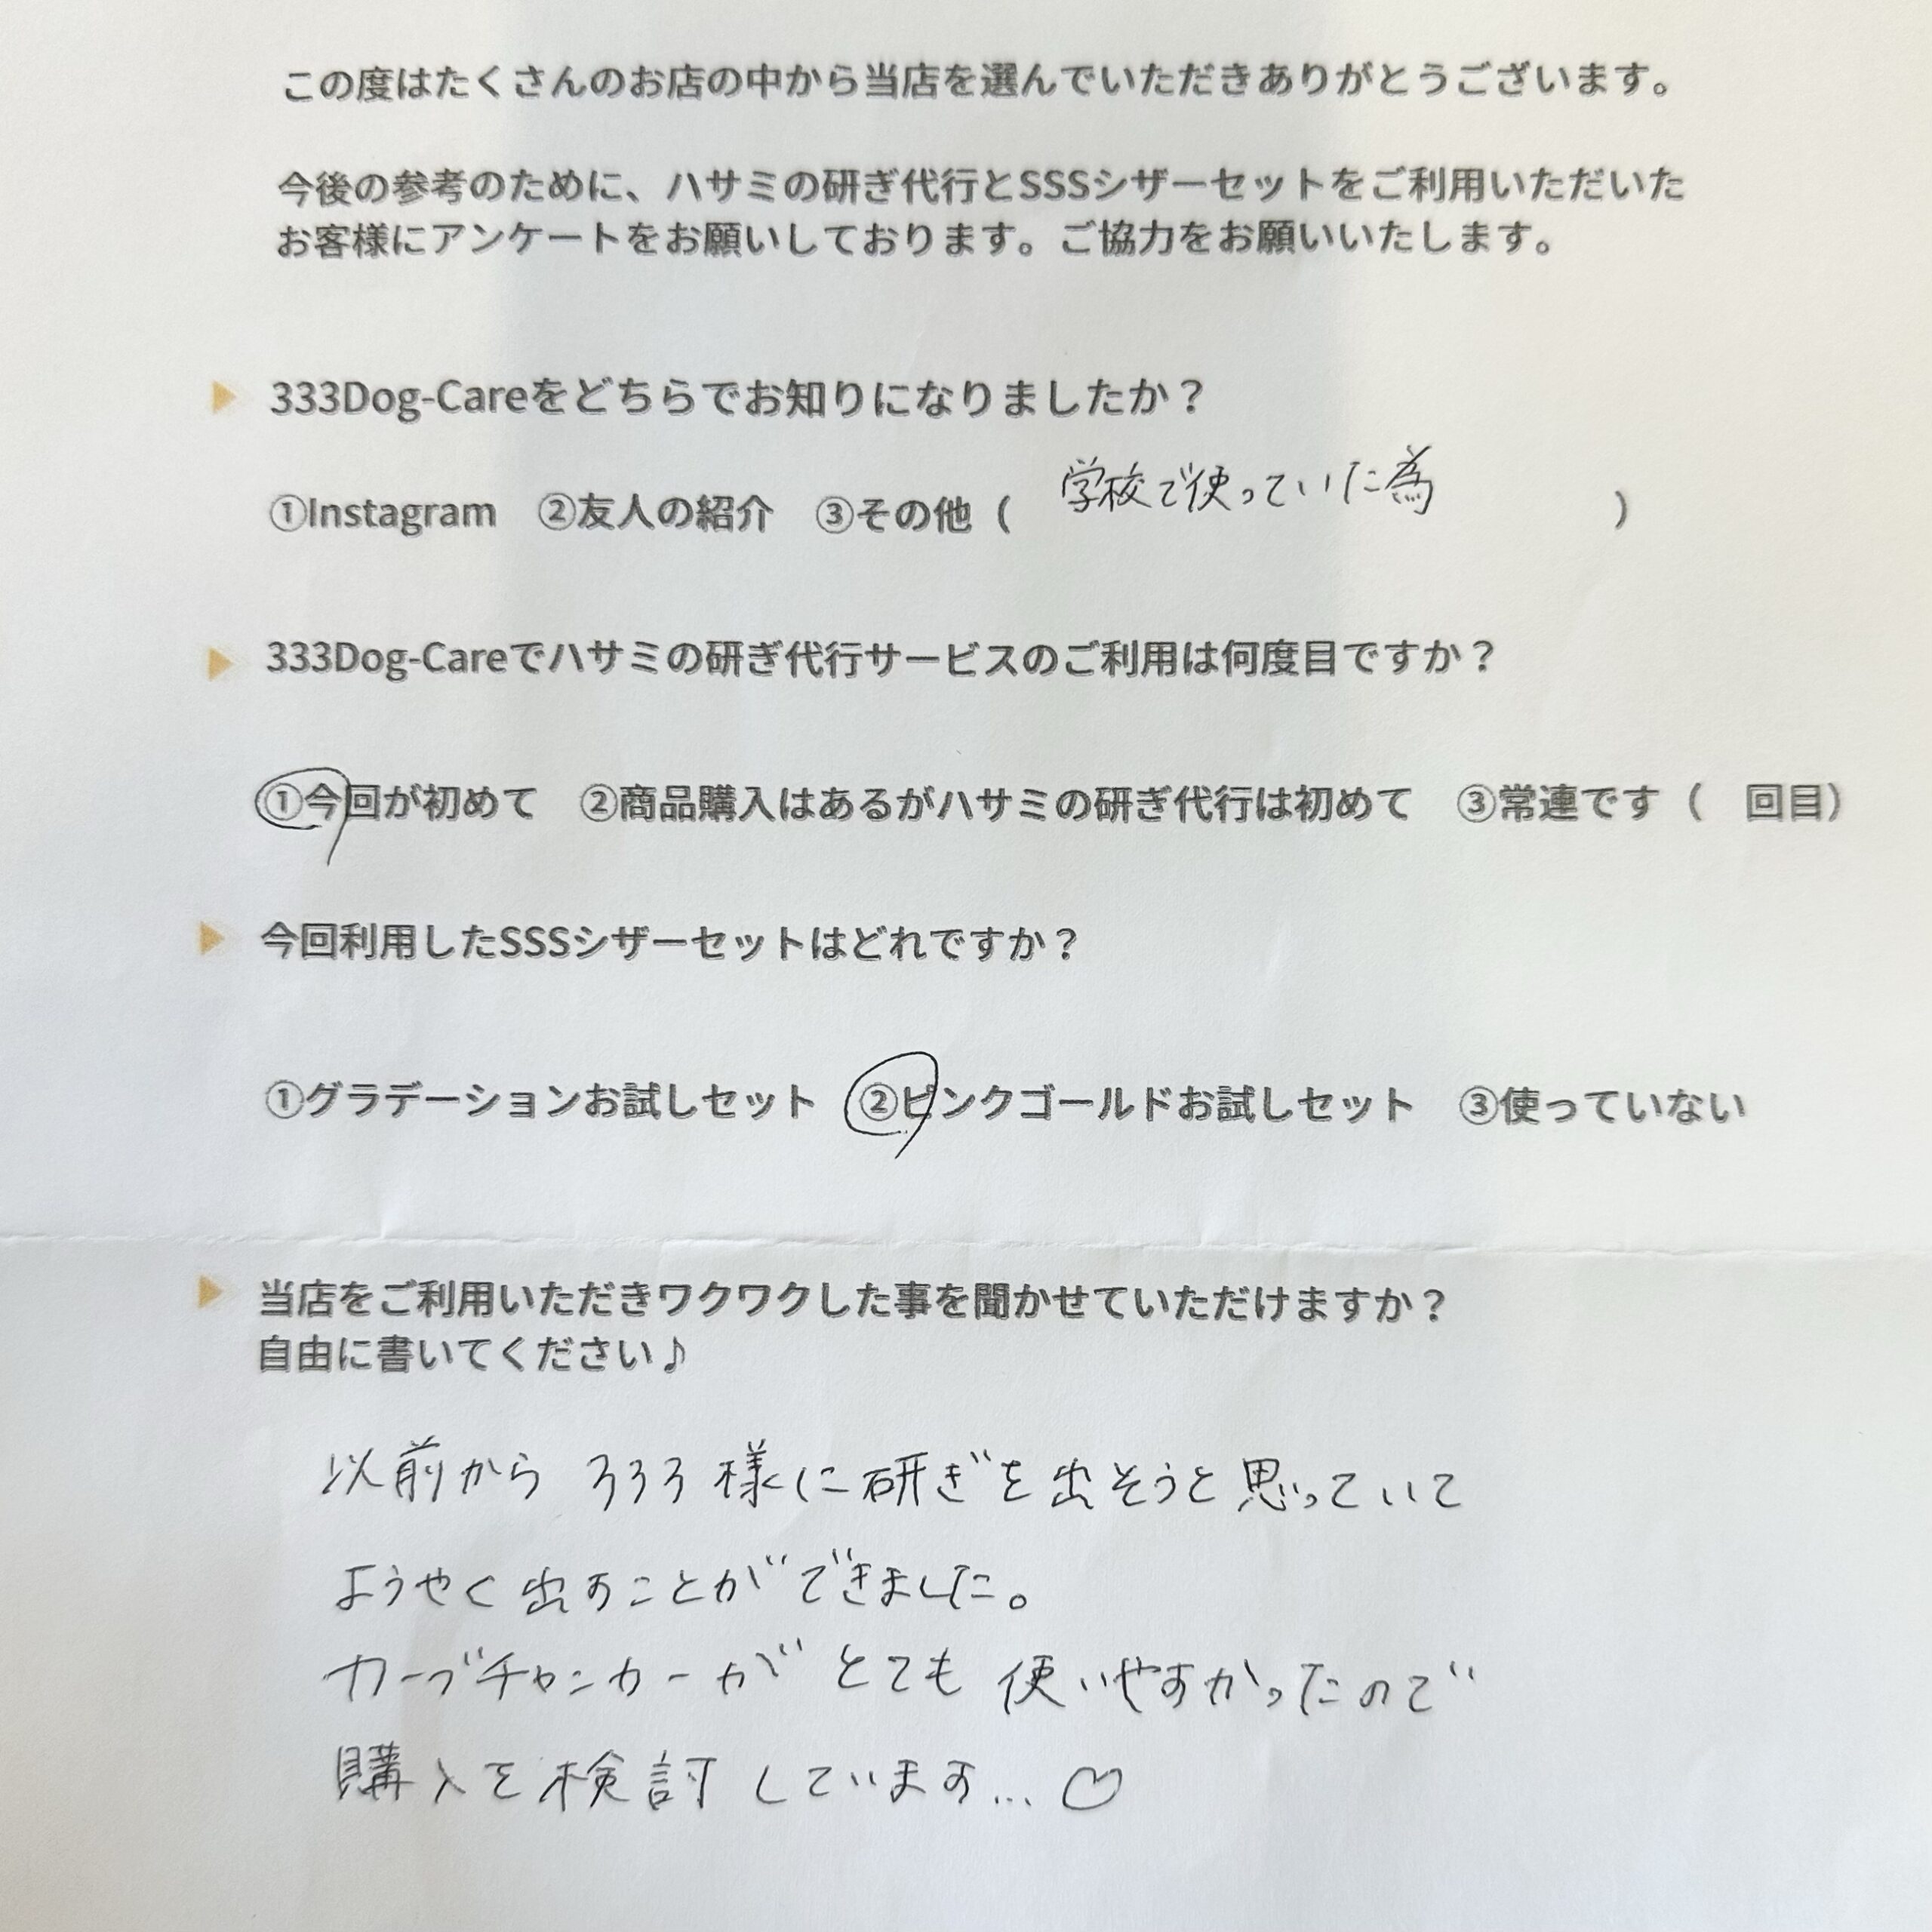 この度はたくさんのお店の中から当店を選んでいただきありがとうございます。
今後の参考のために、ハサミの研ぎ代行とSSSシザーセットをご利用いただいた
お客様にアンケートをお願いしております。ご協力をお願いいたします。
333Dog-Careをどちらでお知りになりましたか？
①Instagram　②友人の紹介　③その他（　学校で使っていた為　）
333Dog-Careでハサミの研ぎ代行サービスのご利用は何度目ですか？
①今回が初めて　②商品購入はあるがハサミの研ぎ代行は初めて　③常連です（　回目）
今回利用したSSSシザーセットはどれですか？
①グラデーションお試しセット　②ピンクゴールドお試しセット　③使っていない
当店をご利用いただきワクワクした事を聞かせていただけますか？
自由に書いてください♪
以前から 333様に研ぎを出そうと思っていて
ようやく出すことができました。
カーブチャンカーがとても使いやすかったので
購入を検討しています…♡